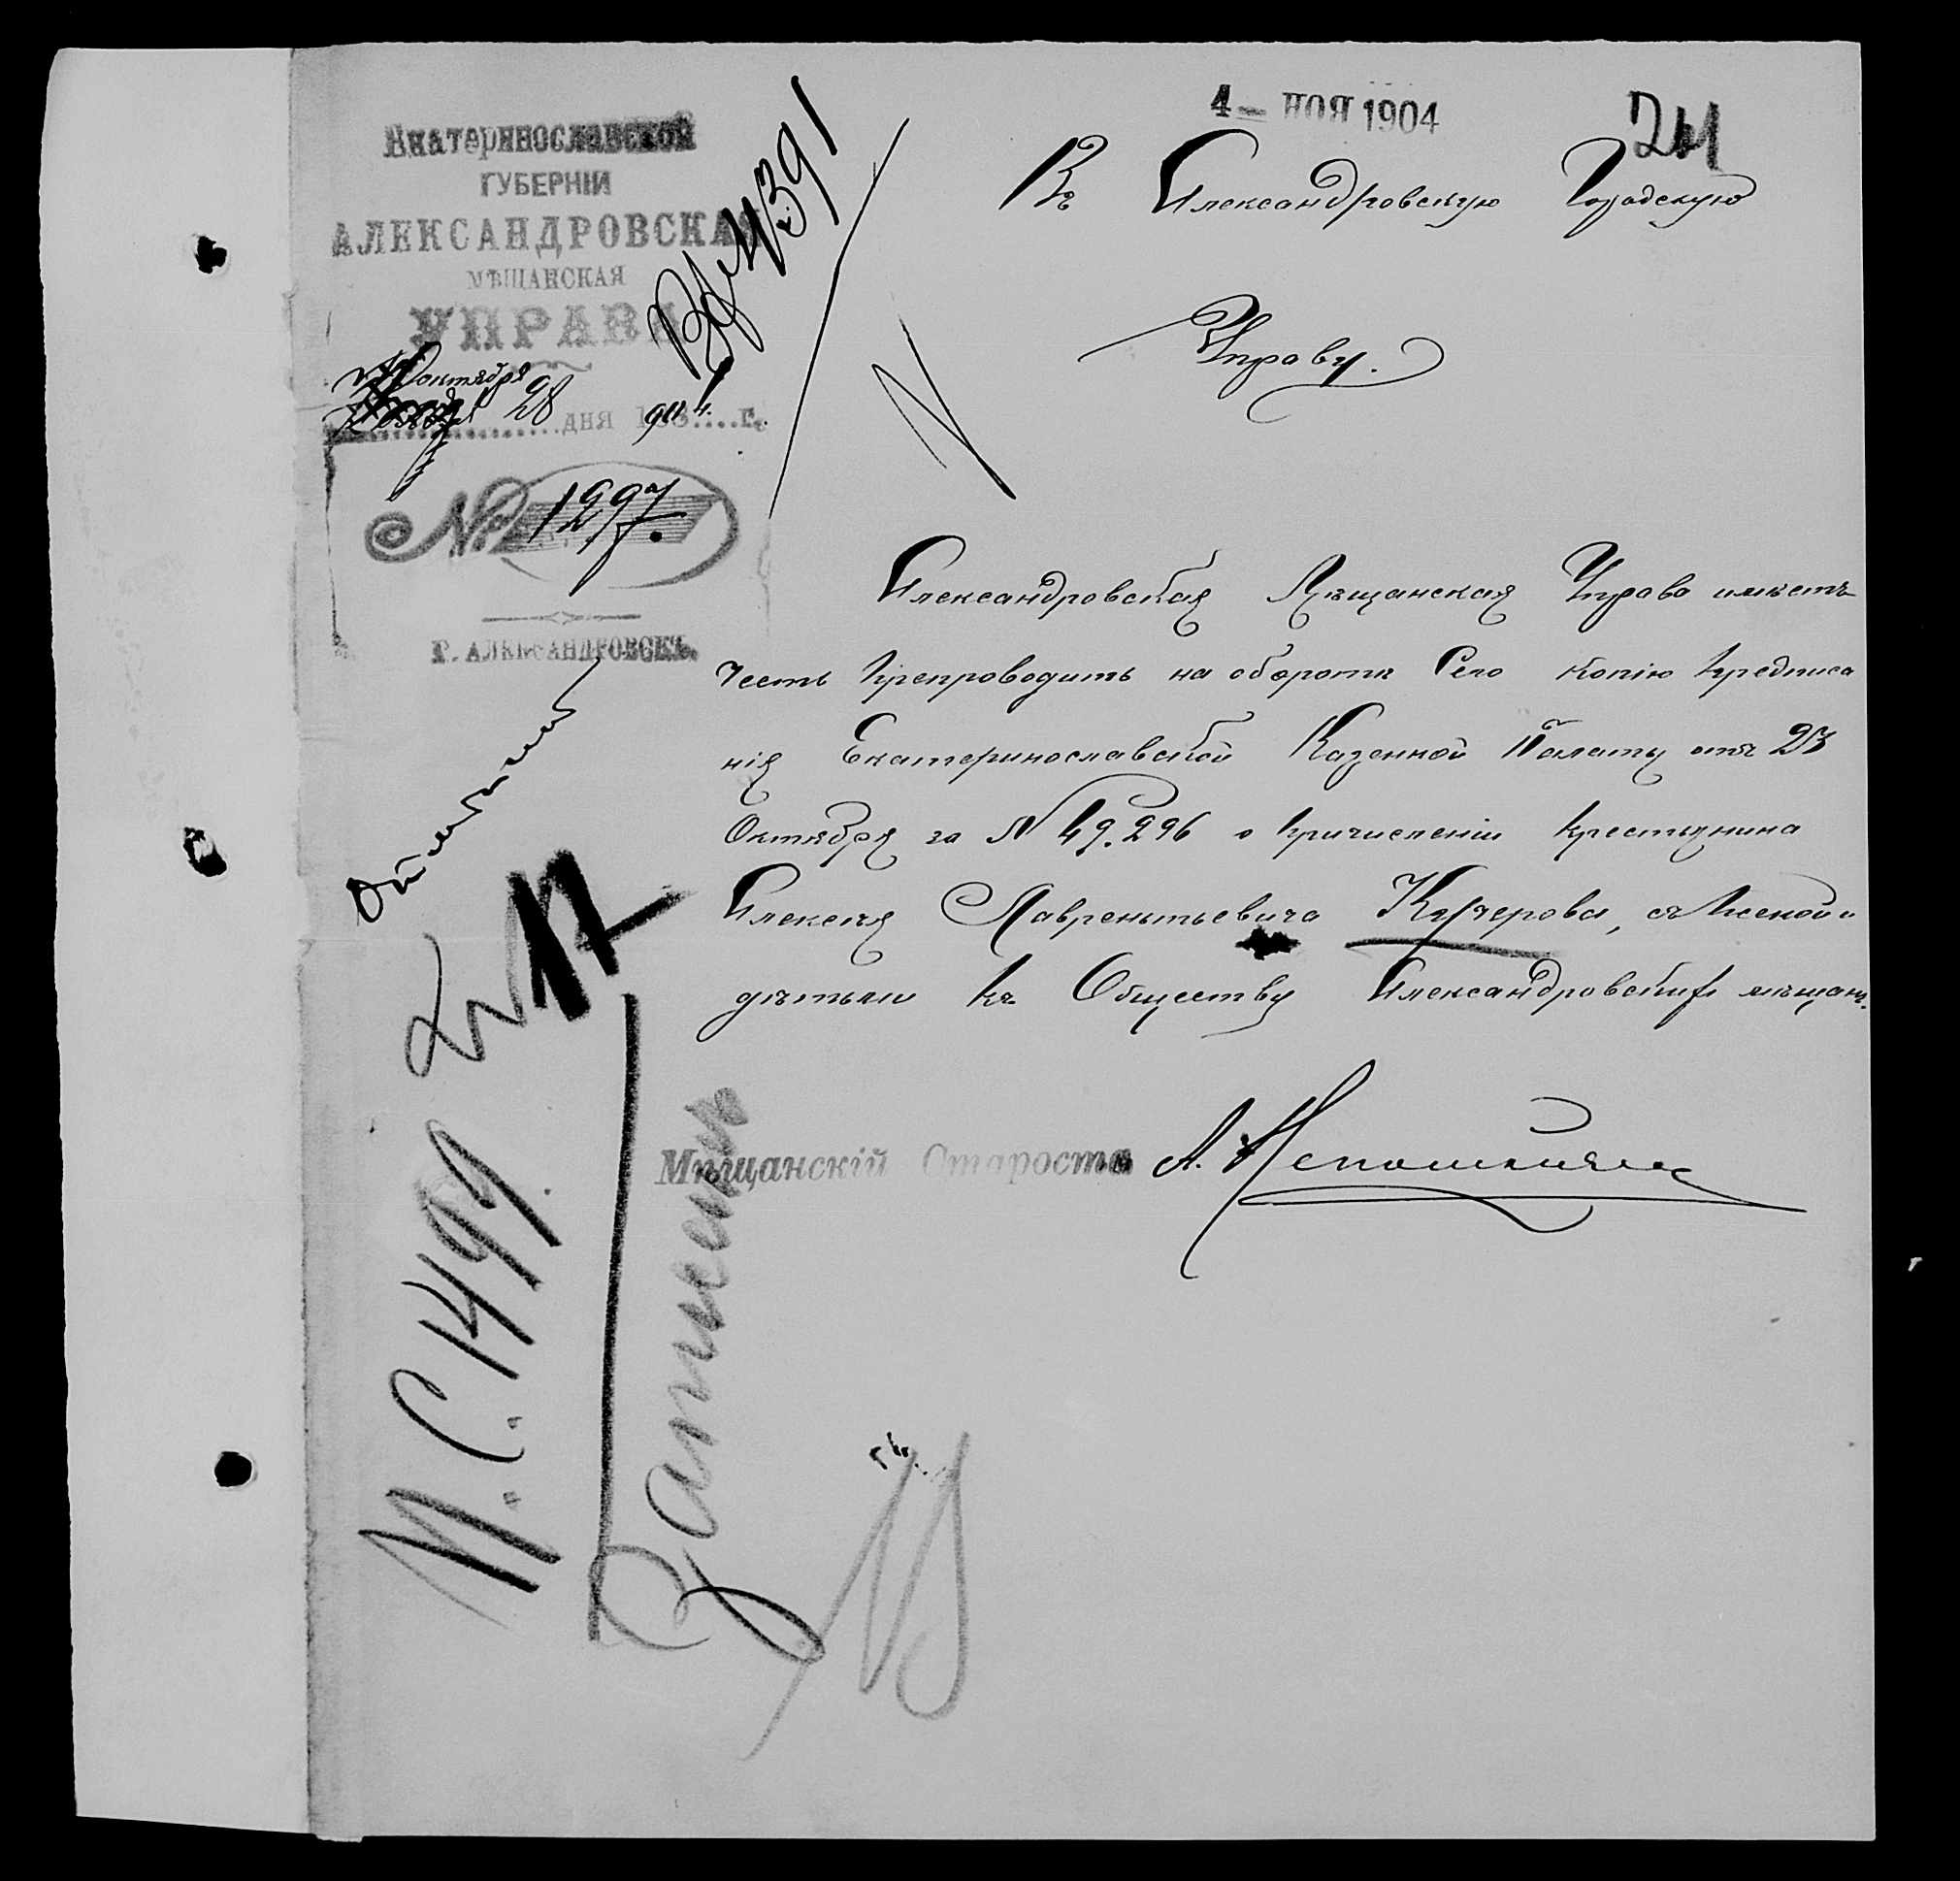 4 - НОЯ 1904
241
Екатеринославской
ГУБЕРНІИ
АЛЕКСАНДРОВСКАЯ
МѢЩАНСКАЯ
УПРАВА
Октября
28 дня 1904 г.
№ 1997.
Г. АЛЕКСАНДРОВСКЪ.
Вх № 4391
Въ Александровскую Городскую
Управу.
Александровская Мѣщанская Управа имѣетъ
честь препроводить на оборотѣ сего копію предписа
нія Екатеринославской Казенной Палаты отъ 23
Октября за № 49.296 о причисленіи крестьянина
Алексѣя Лаврентьевича Кучерова, съ женой и
дѣтьми къ Обществу Александровскихъ мѣщанъ.
Мѣщанскій Староста А.
17
М. С. 1499.